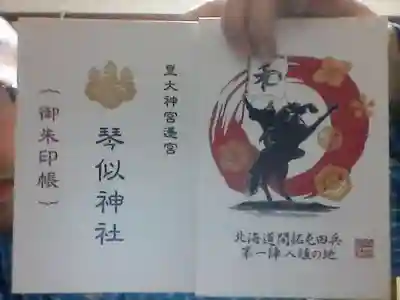 皇大神宮遙宮
琴似神社
(御朱印帳)
和
北海道開拓屯田兵
第一陣入植の地